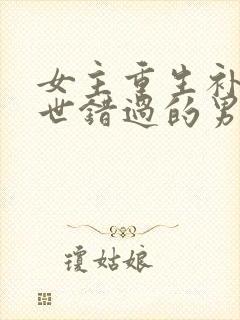 女主重生补
世错过的男
瓊姑娘